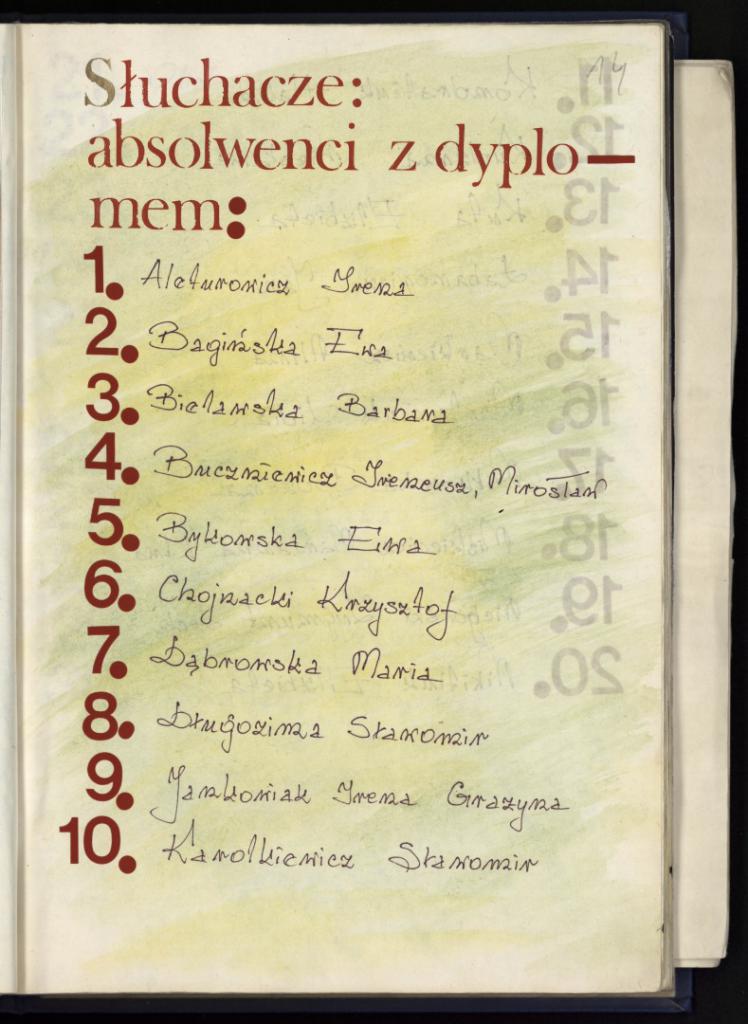 14
Słuchacze:
absolwenci z dyplo-
mem:
1. Alcturowicz Irena
2. Bagińska Ewa
3. Bielawska Barbara
4. Buczniewicz Ireneusz, Mirosław
5. Bykowska Ewa
6. Chojnacki Krzysztof
7. Dąbrowska Maria
8. Długozima Sławomir
9. Jankowiak Irena Grażyna
10. Karolkiewicz Sławomir